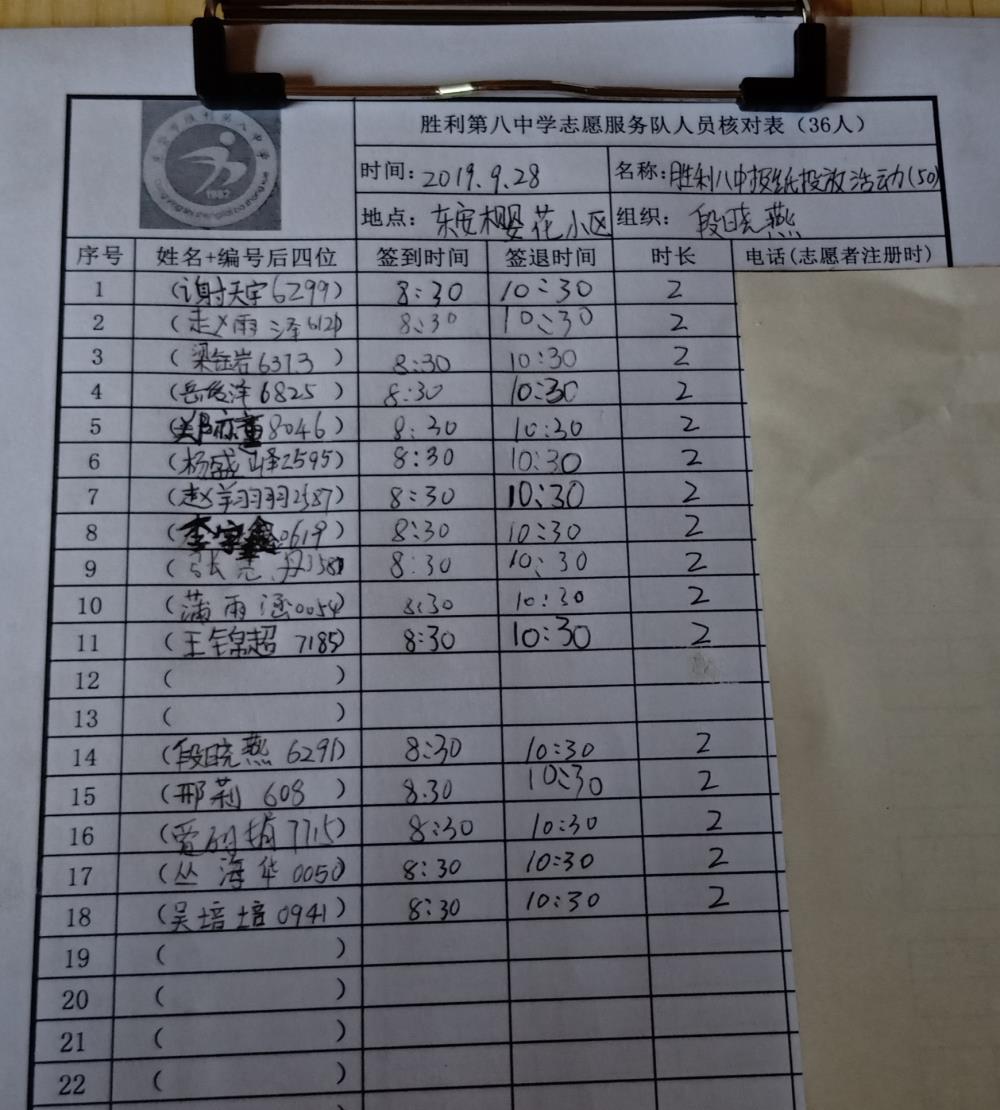 胜利第八中学志愿服务队人员核对表（36人）
时间：2019.9.28 名称：胜利八中报纸投放活动(50)
地点：东安樱花小区 组织：段晓燕
1982
序号 姓名+编号后四位 签到时间 签退时间 时长 电话(志愿者注册时)
1 (谢天宇6299) 8:30 10:30 2
2 (赵雨泽6121) 8:30 10:30 2
3 (梁钰岩6373) 8:30 10:30 2
4 (岳 泽6825) 8:30 10:30 2
5 (郑亦童8046) 8:30 10:30 2
6 (杨盛峄2595) 8:30 10:30 2
7 (赵翔羽2587) 8:30 10:30 2
8 (李宇鑫0619) 8:30 10:30 2
9 (张 丹) 8:30 10:30 2
10 (蒲雨涵0054) 8:30 10:30 2
11 (王锦超 7185) 8:30 10:30 2
12 ( )
13 ( )
14 (段晓燕 6291) 8:30 10:30 2
15 (邢莉 608 ) 8.30 10:30 2
16 ( 7715) 8:30 10:30 2
17 (丛海华0050) 8:30 10:30 2
18 (吴培培0941) 8:30 10:30 2
19 ( )
20 ( )
21 ( )
22 ( )